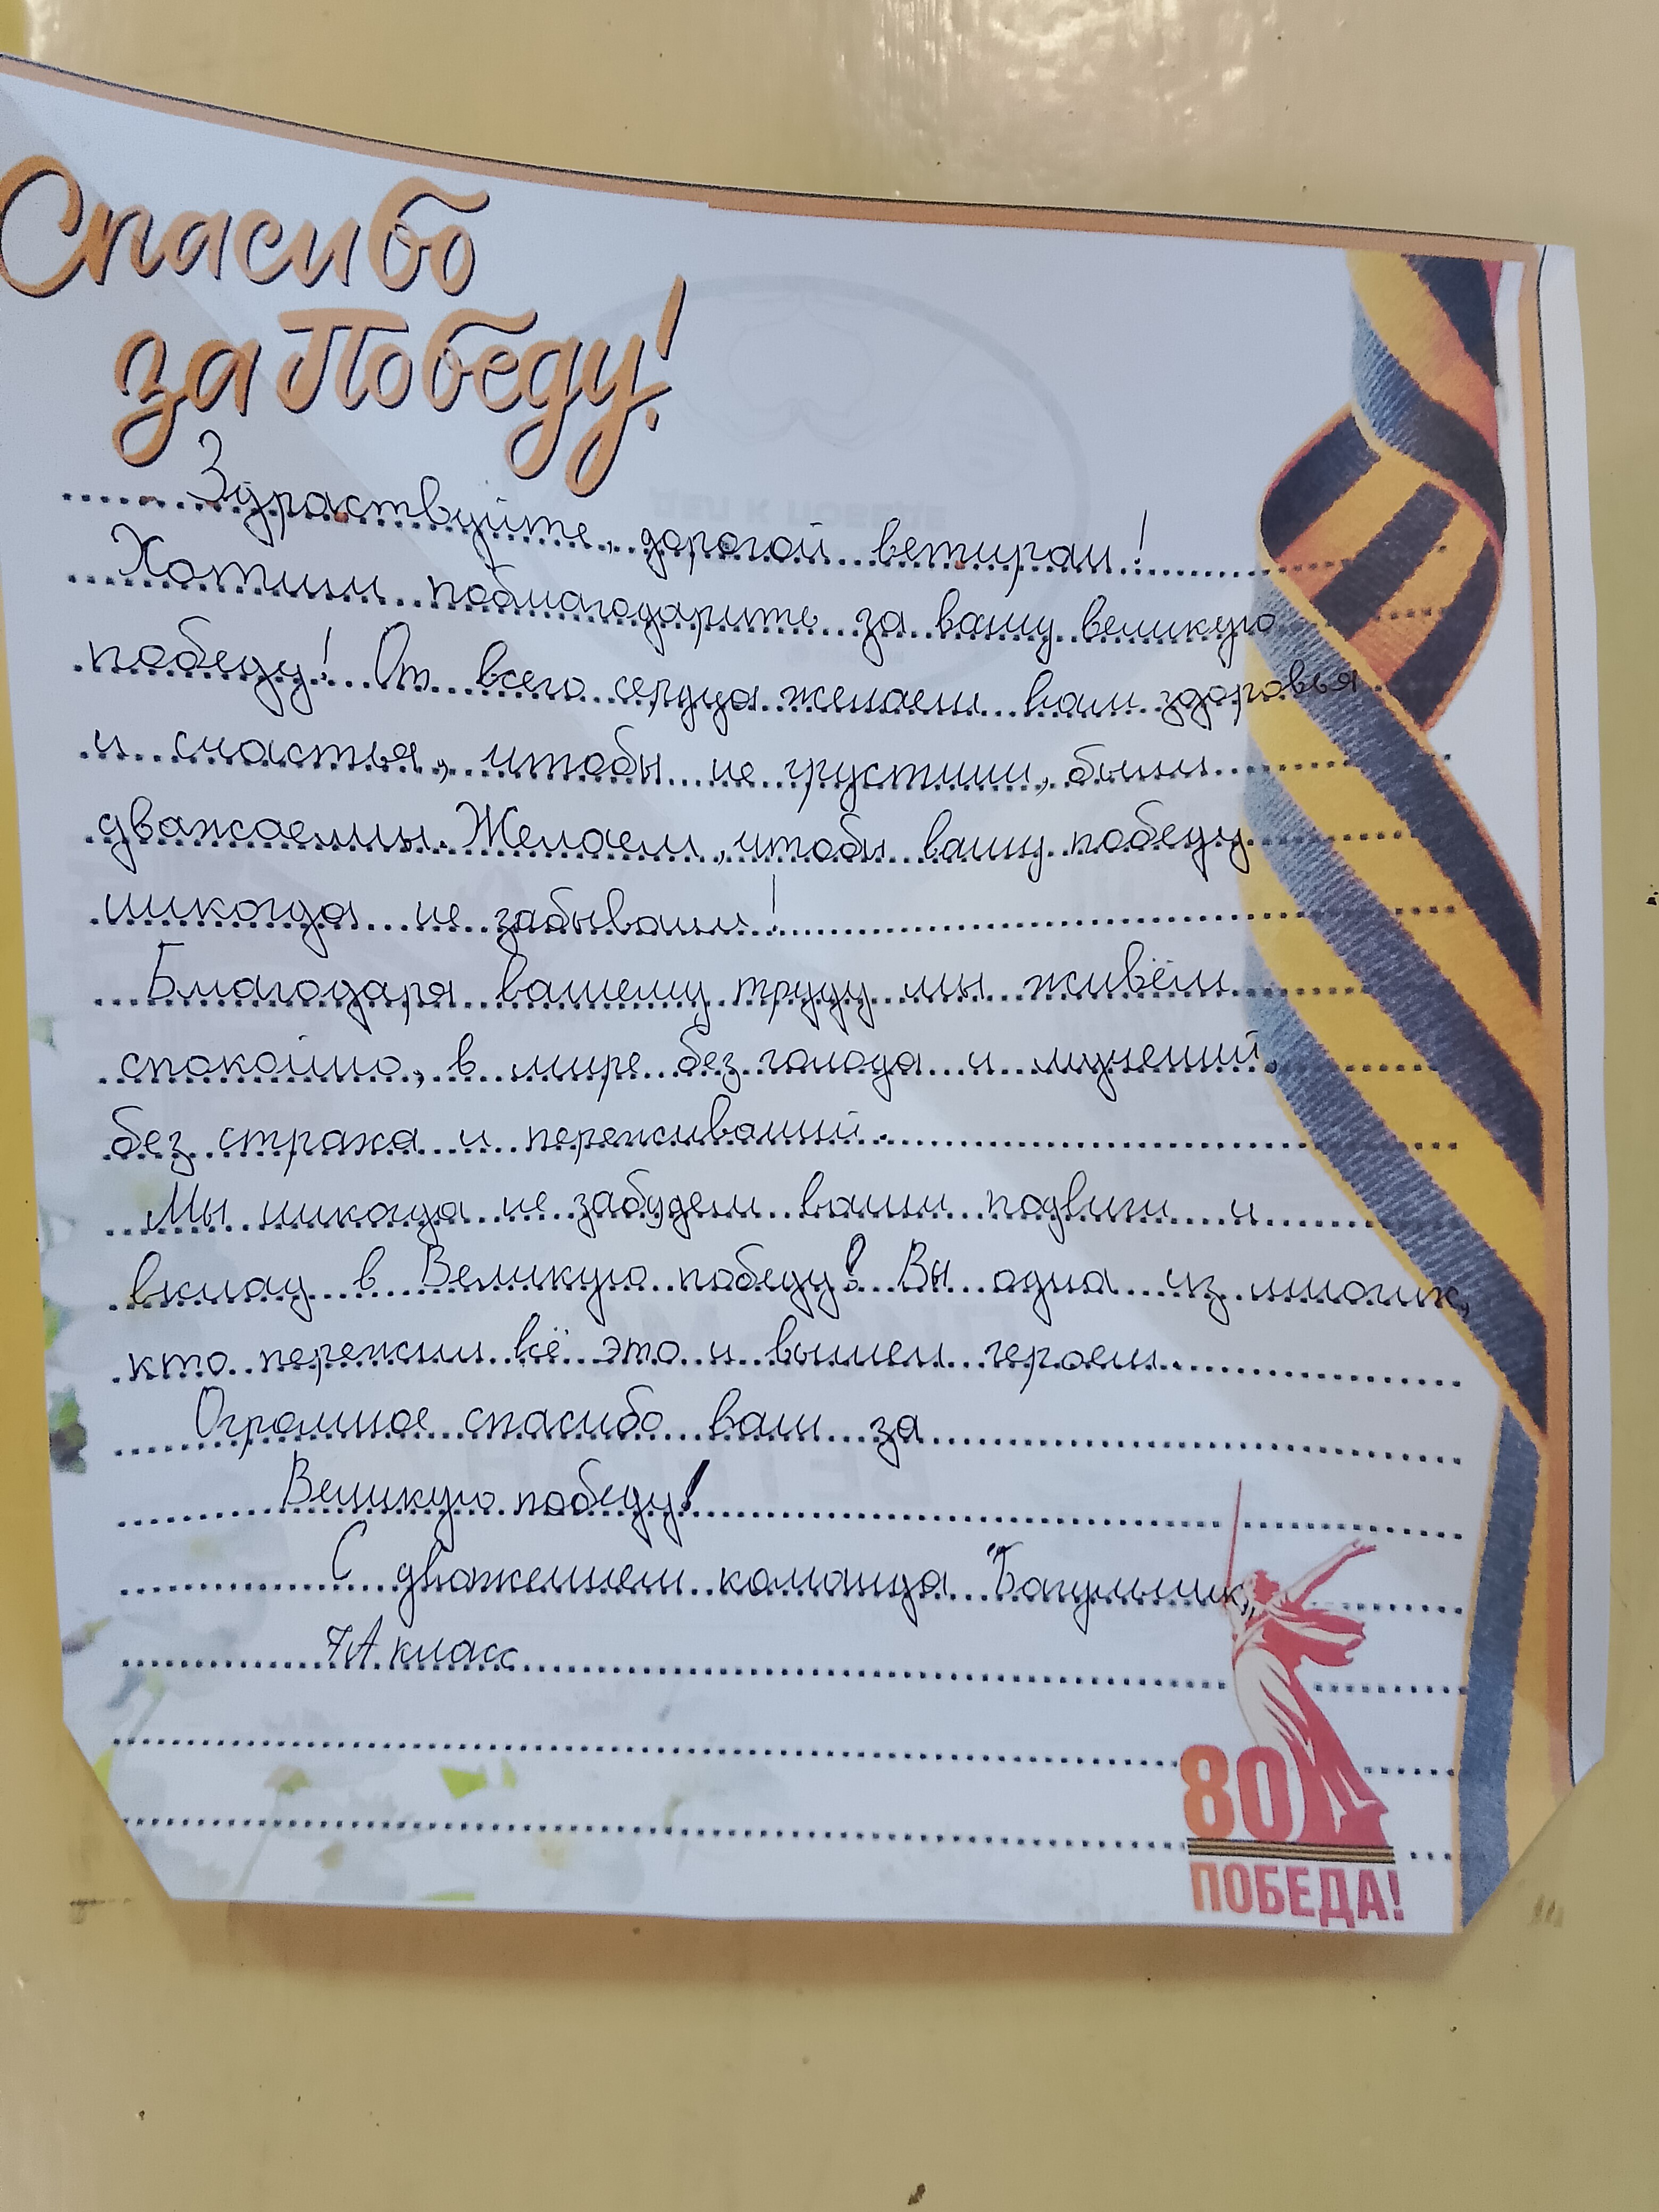 Спасибо
за Победу!
Здраствуйте, дорогой ветиран!
Хотим поблагодарить за вашу великую
победу! От всего сердца желаем вам здоровья
и счастья, чтобы не грустили, были
уважаемы. Желаем, чтобы вашу победу
никогда не забывали!
Благодаря вашему труду мы живём
спокойно, в мире без голода и мучений,
без страха и переживаний.
Мы никогда не забудем ваши подвиги и
вклад в Великую победу! Вы одна из многих,
кто пережил всё это и вышел героем.
Огромное спасибо вам за
Великую победу!
С уважением команда "Багульник"
7А класс
80
ПОБЕДА!